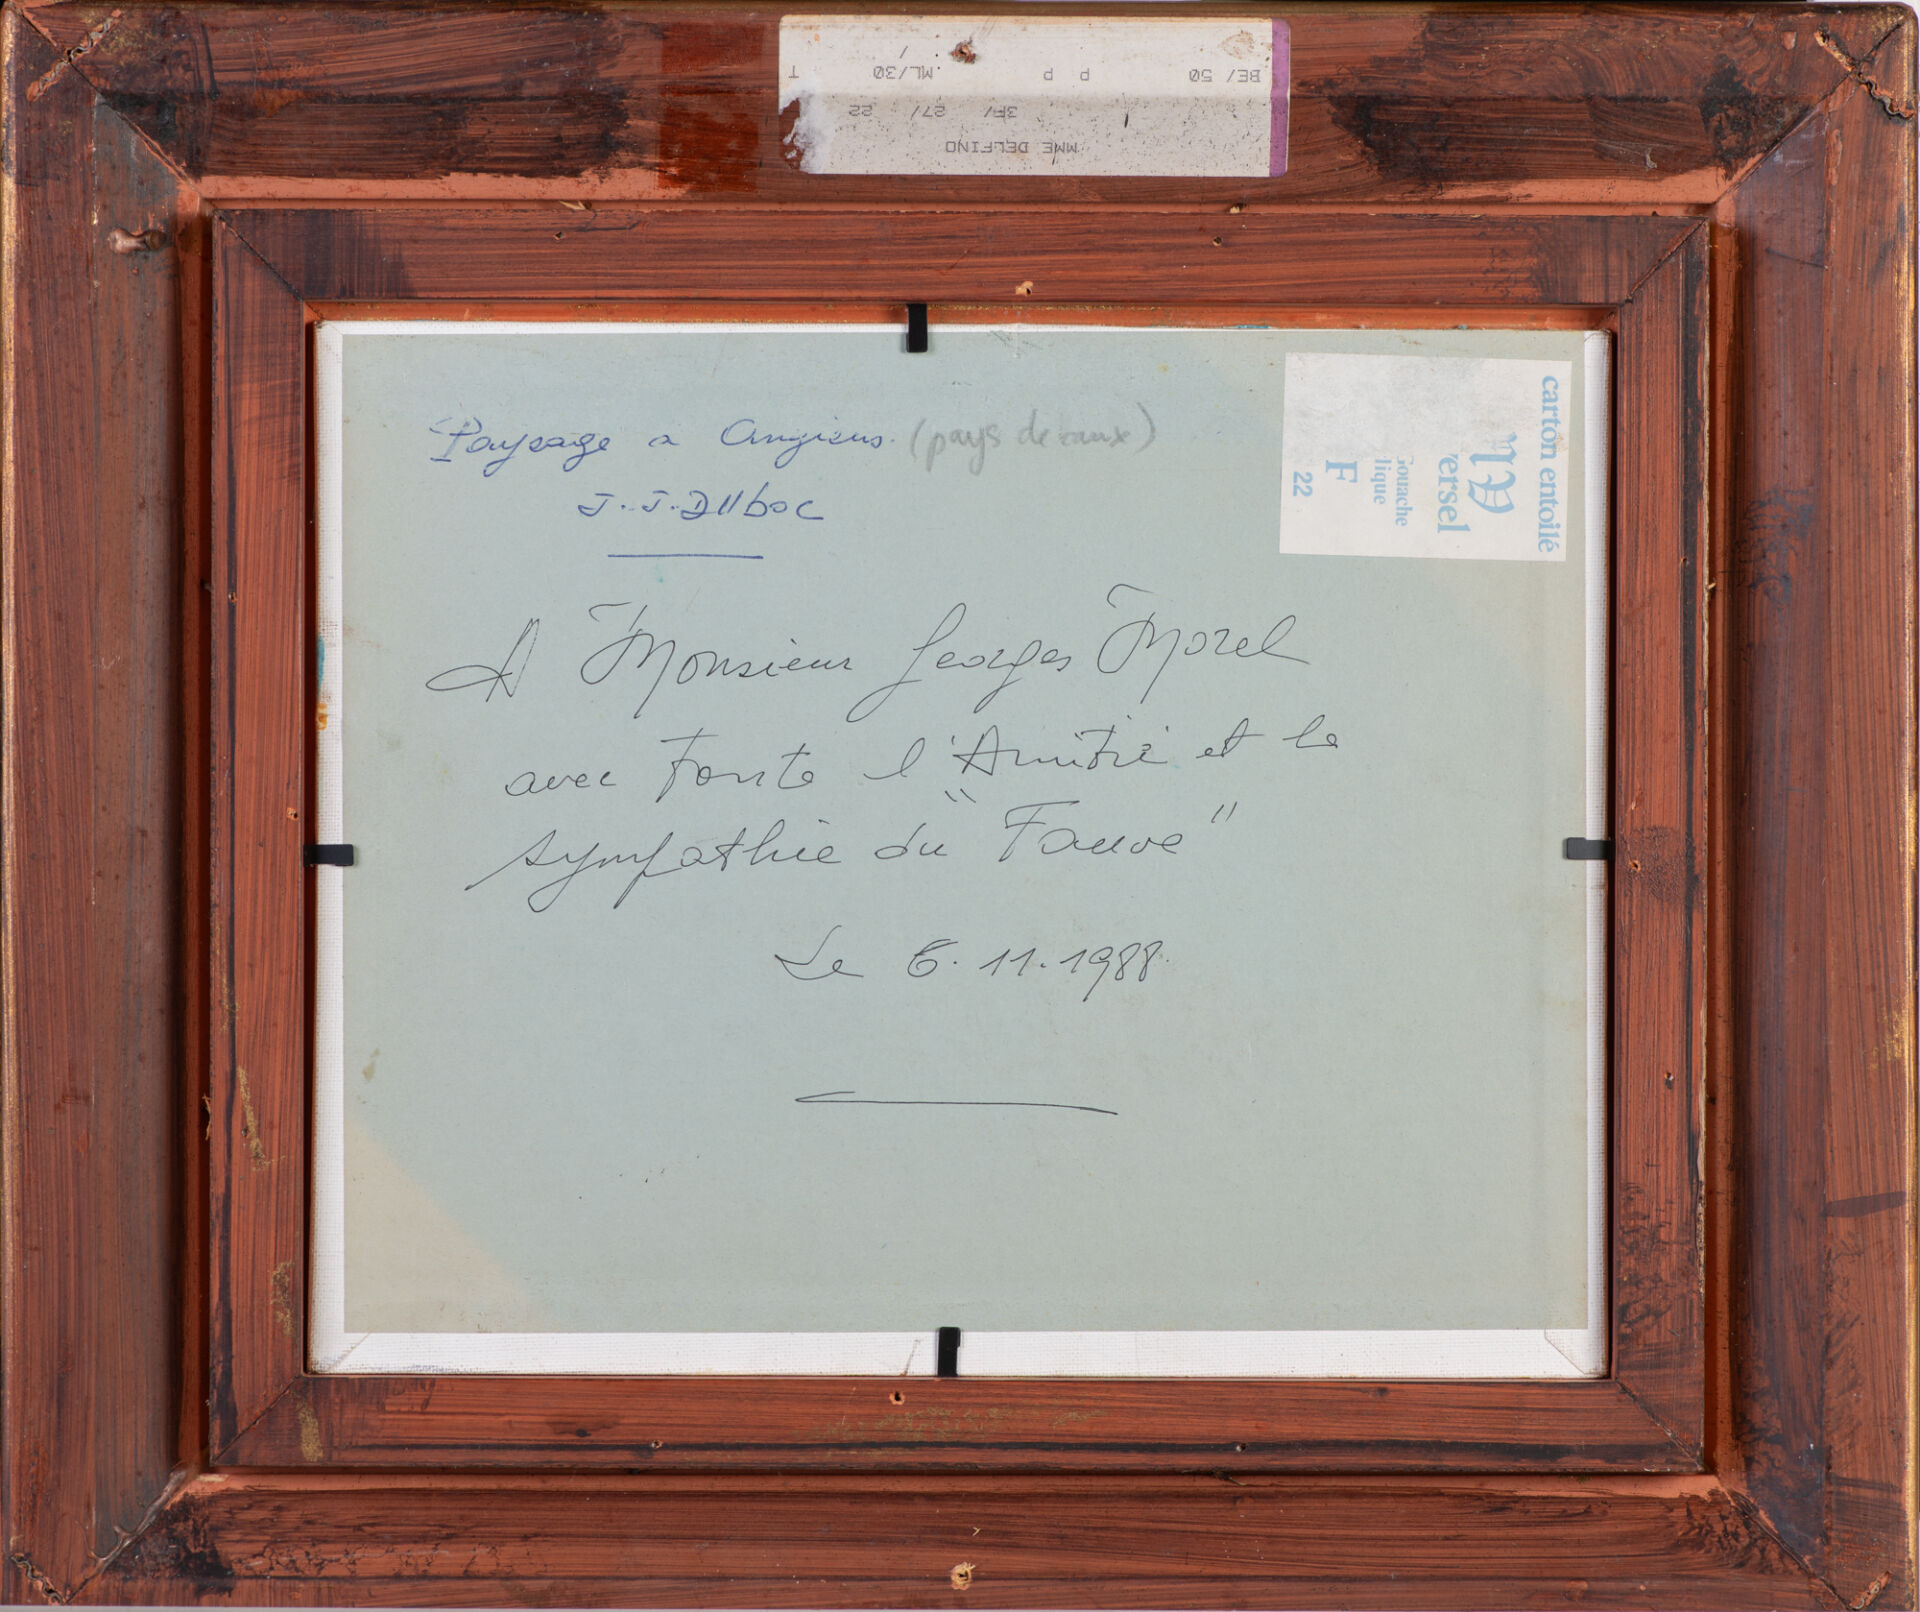 BE/ 50 P P ML/30 / T
3F/ 27/ 22
MME DELFINO
Paysage a Angiens. (pays de caux)
J.J. Duboc
A Monsieur Georges Morel
avec toute l'Amitié et la
sympathie du "Fauve"
Le 6.11.1988.
carton entoilé
ersel
ouache
lique
F
22